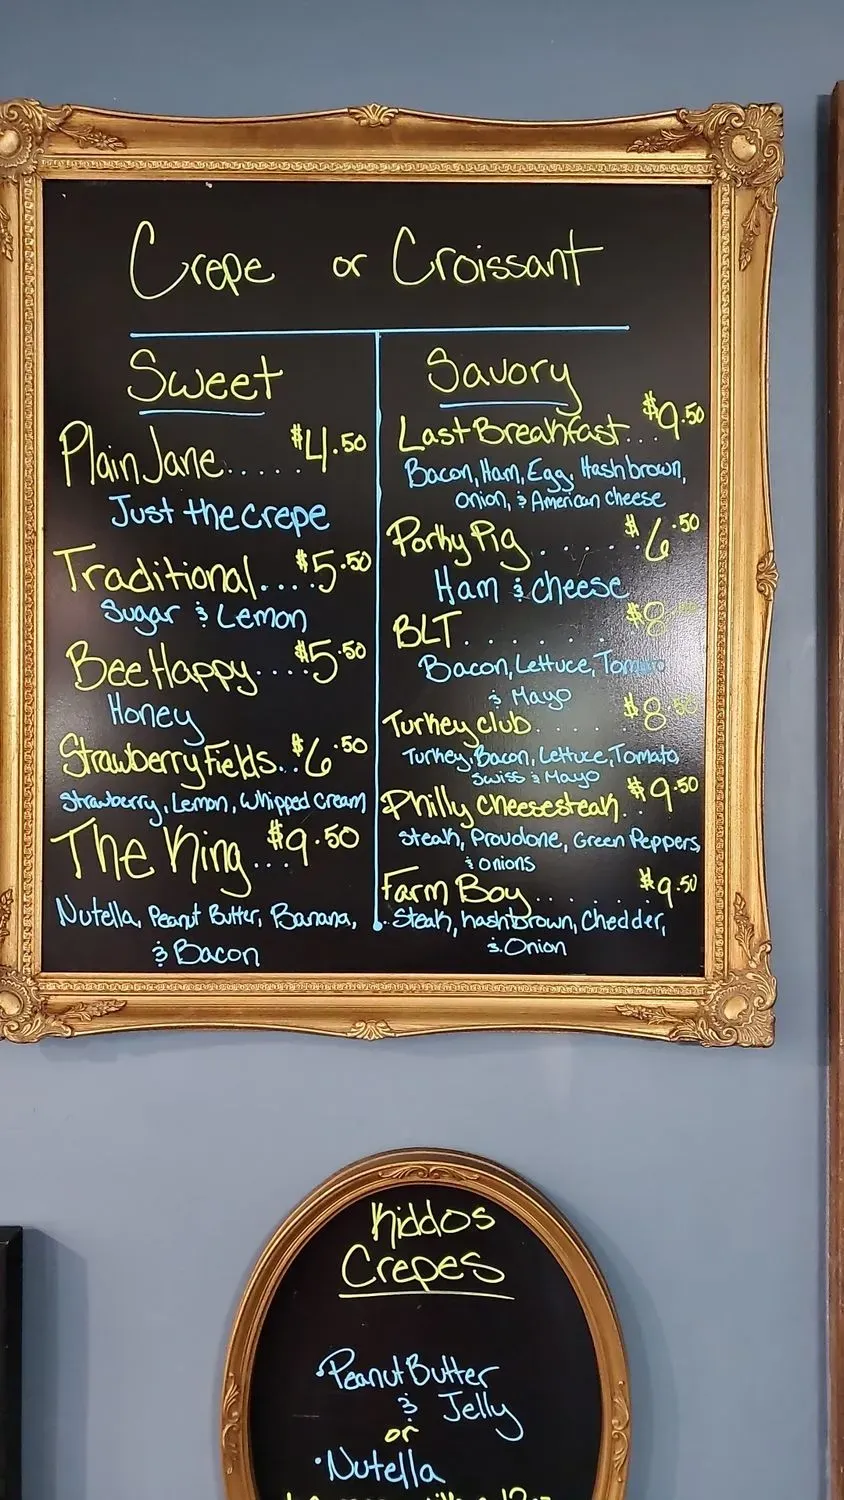 Crepe or Croissant
Sweet
Plain Jane..... $4.50
Just the crepe
Traditional.... $5.50
Sugar & Lemon
Bee Happy.... $5.50
Honey
Strawberry Fields.. $6.50
Strawberry, Lemon, Whipped Cream
The King... $9.50
Nutella, Peanut Butter, Banana,
& Bacon
Savory
Last Breakfast... $9.50
Bacon, Ham, Egg, Hashbrown,
Onion, & American cheese
Porky Pig...... $6.50
Ham & cheese
BLT....... $8
Bacon, Lettuce, Tomato
& Mayo
Turkey club...... $8.50
Turkey, Bacon, Lettuce, Tomato
Swiss & Mayo
Philly cheesesteak.. $9.50
Steak, Provolone, Green Peppers
& onions
Farm Boy....... $9.50
Steak, hashbrown, Chedder,
& Onion
Kiddos
Crepes
•Peanut Butter
& Jelly
or
•Nutella